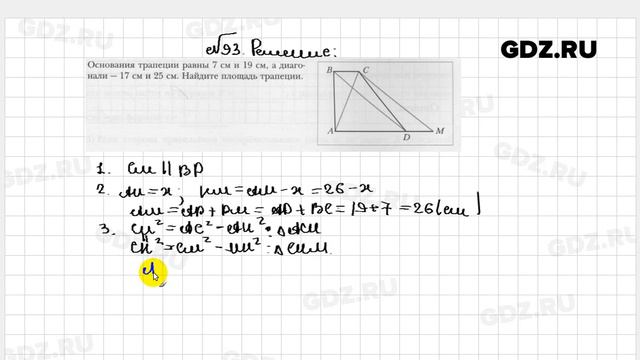 №93. Решение:
GDZ.RU
Основания трапеции равны 7 см и 19 см, а диаго-
нали — 17 см и 25 см. Найдите площадь трапеции.
B C
A D M
1. СМ || BD
2. AH = x; HM = AM - x = 26 - x
AM = AD + DM = AD + BC = 19 + 7 = 26 (см)
3. CH² = AC² - AH² : Δ ACH
CH² = CM² - HM² : Δ CHM.